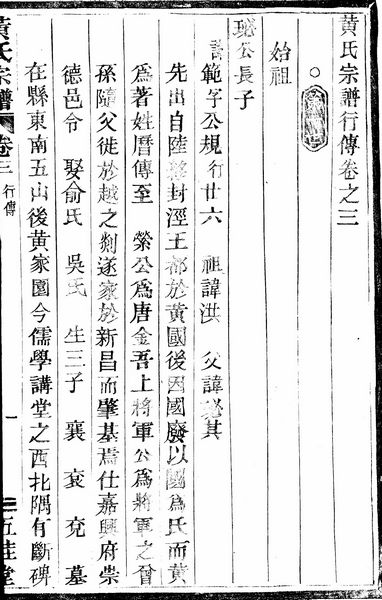 黃氏宗譜行傳卷之三
始祖
珌公長子
諱範字公規行廿六 祖諱洪 父諱珌其
先出自陸終封涇王都於黃國後因國廢以國為氏而黃
為著姓曆傳至 榮公為唐金吾上將軍公為將軍之曾
孫隨父徙於越之剡遂家於新昌而肇基焉仕嘉興府崇
德邑令 娶俞氏 吳氏 生三子 襄 袞 兗 墓
在縣東南五山後黃家園今儒學講堂之西北隅有斷碑
黃氏宗譜 卷三 行傳 一 五桂堂